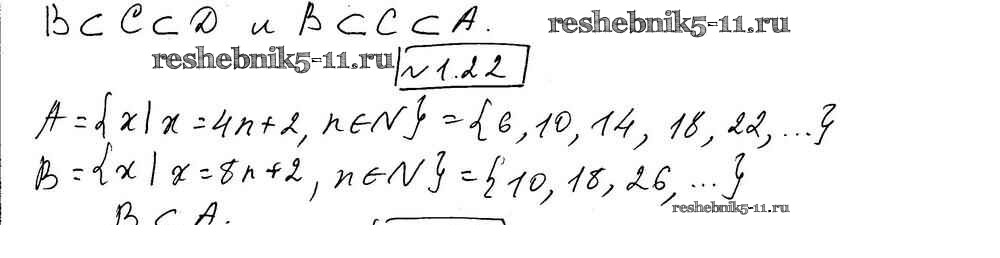 B ⊂ C ⊂ D и B ⊂ C ⊂ A. reshebnik5-11.ru
reshebnik5-11.ru №1.22
A = {x | x = 4n + 2, n ∈ N} = {6, 10, 14, 18, 22, ...}
B = {x | x = 8n + 2, n ∈ N} = {10, 18, 26, ...}
reshebnik5-11.ru
B ⊂ A.